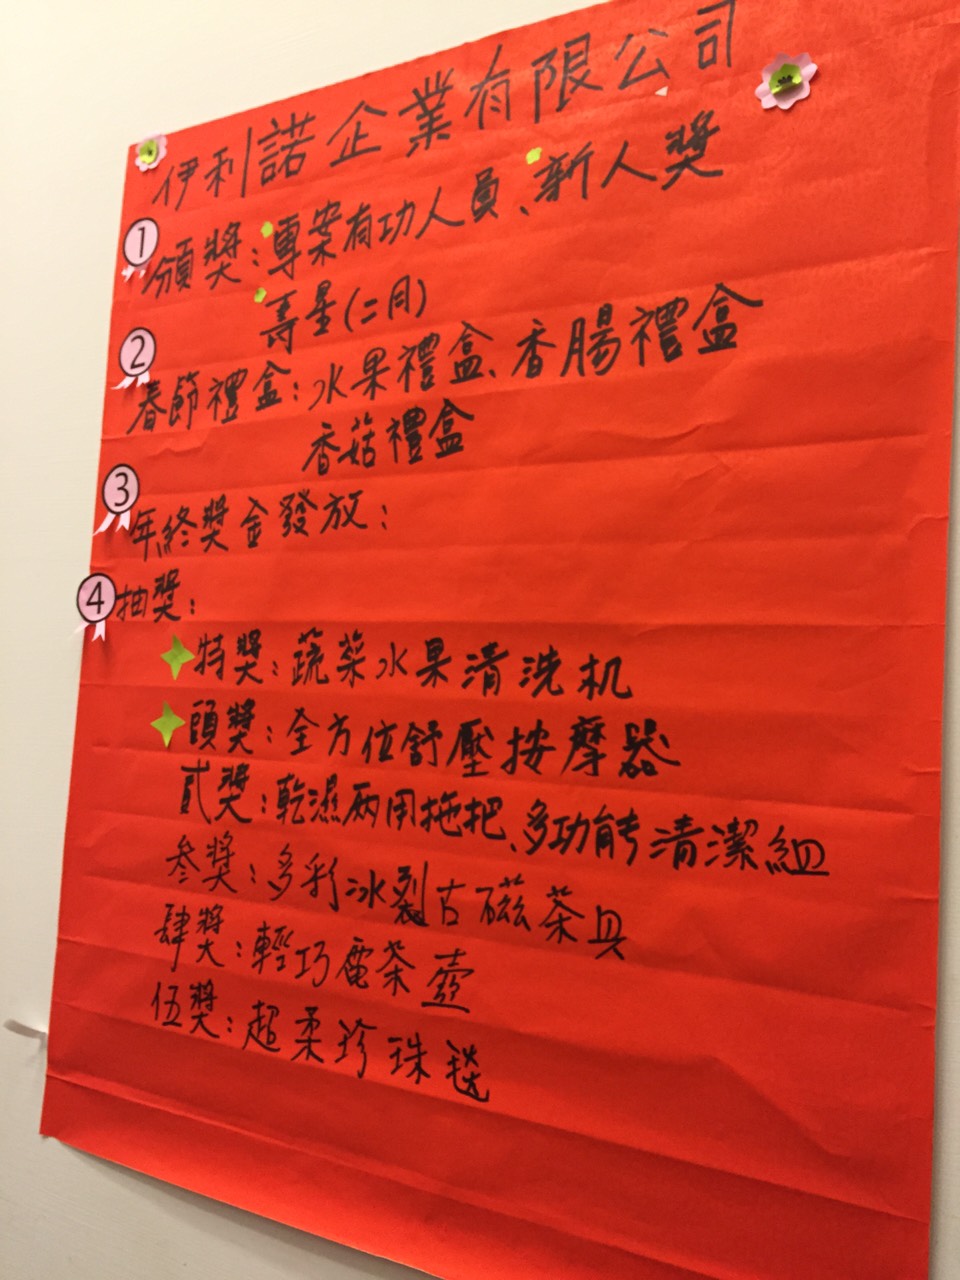 伊利諾企業有限公司
1 頒獎：專案有功人員、新人獎
壽星(二月)
2 春節禮盒：水果禮盒、香腸禮盒
香菇禮盒
3 年終獎金發放：
4 抽獎：
特獎：蔬菜水果清洗机
頭獎：全方位舒壓按摩器
貳獎：乾濕兩用拖把、多功能清潔組
參獎：多彩冰裂古磁茶具
肆獎：輕巧電茶壺
伍獎：超柔珍珠毯